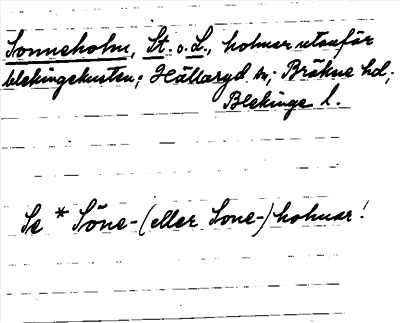 Sonneholm, St. o. L., holmar utanför
blekingekusten; Hällaryd sn; Bräkne hd;
Blekinge l.
Se * Söne- (eller Sone-) holmar!